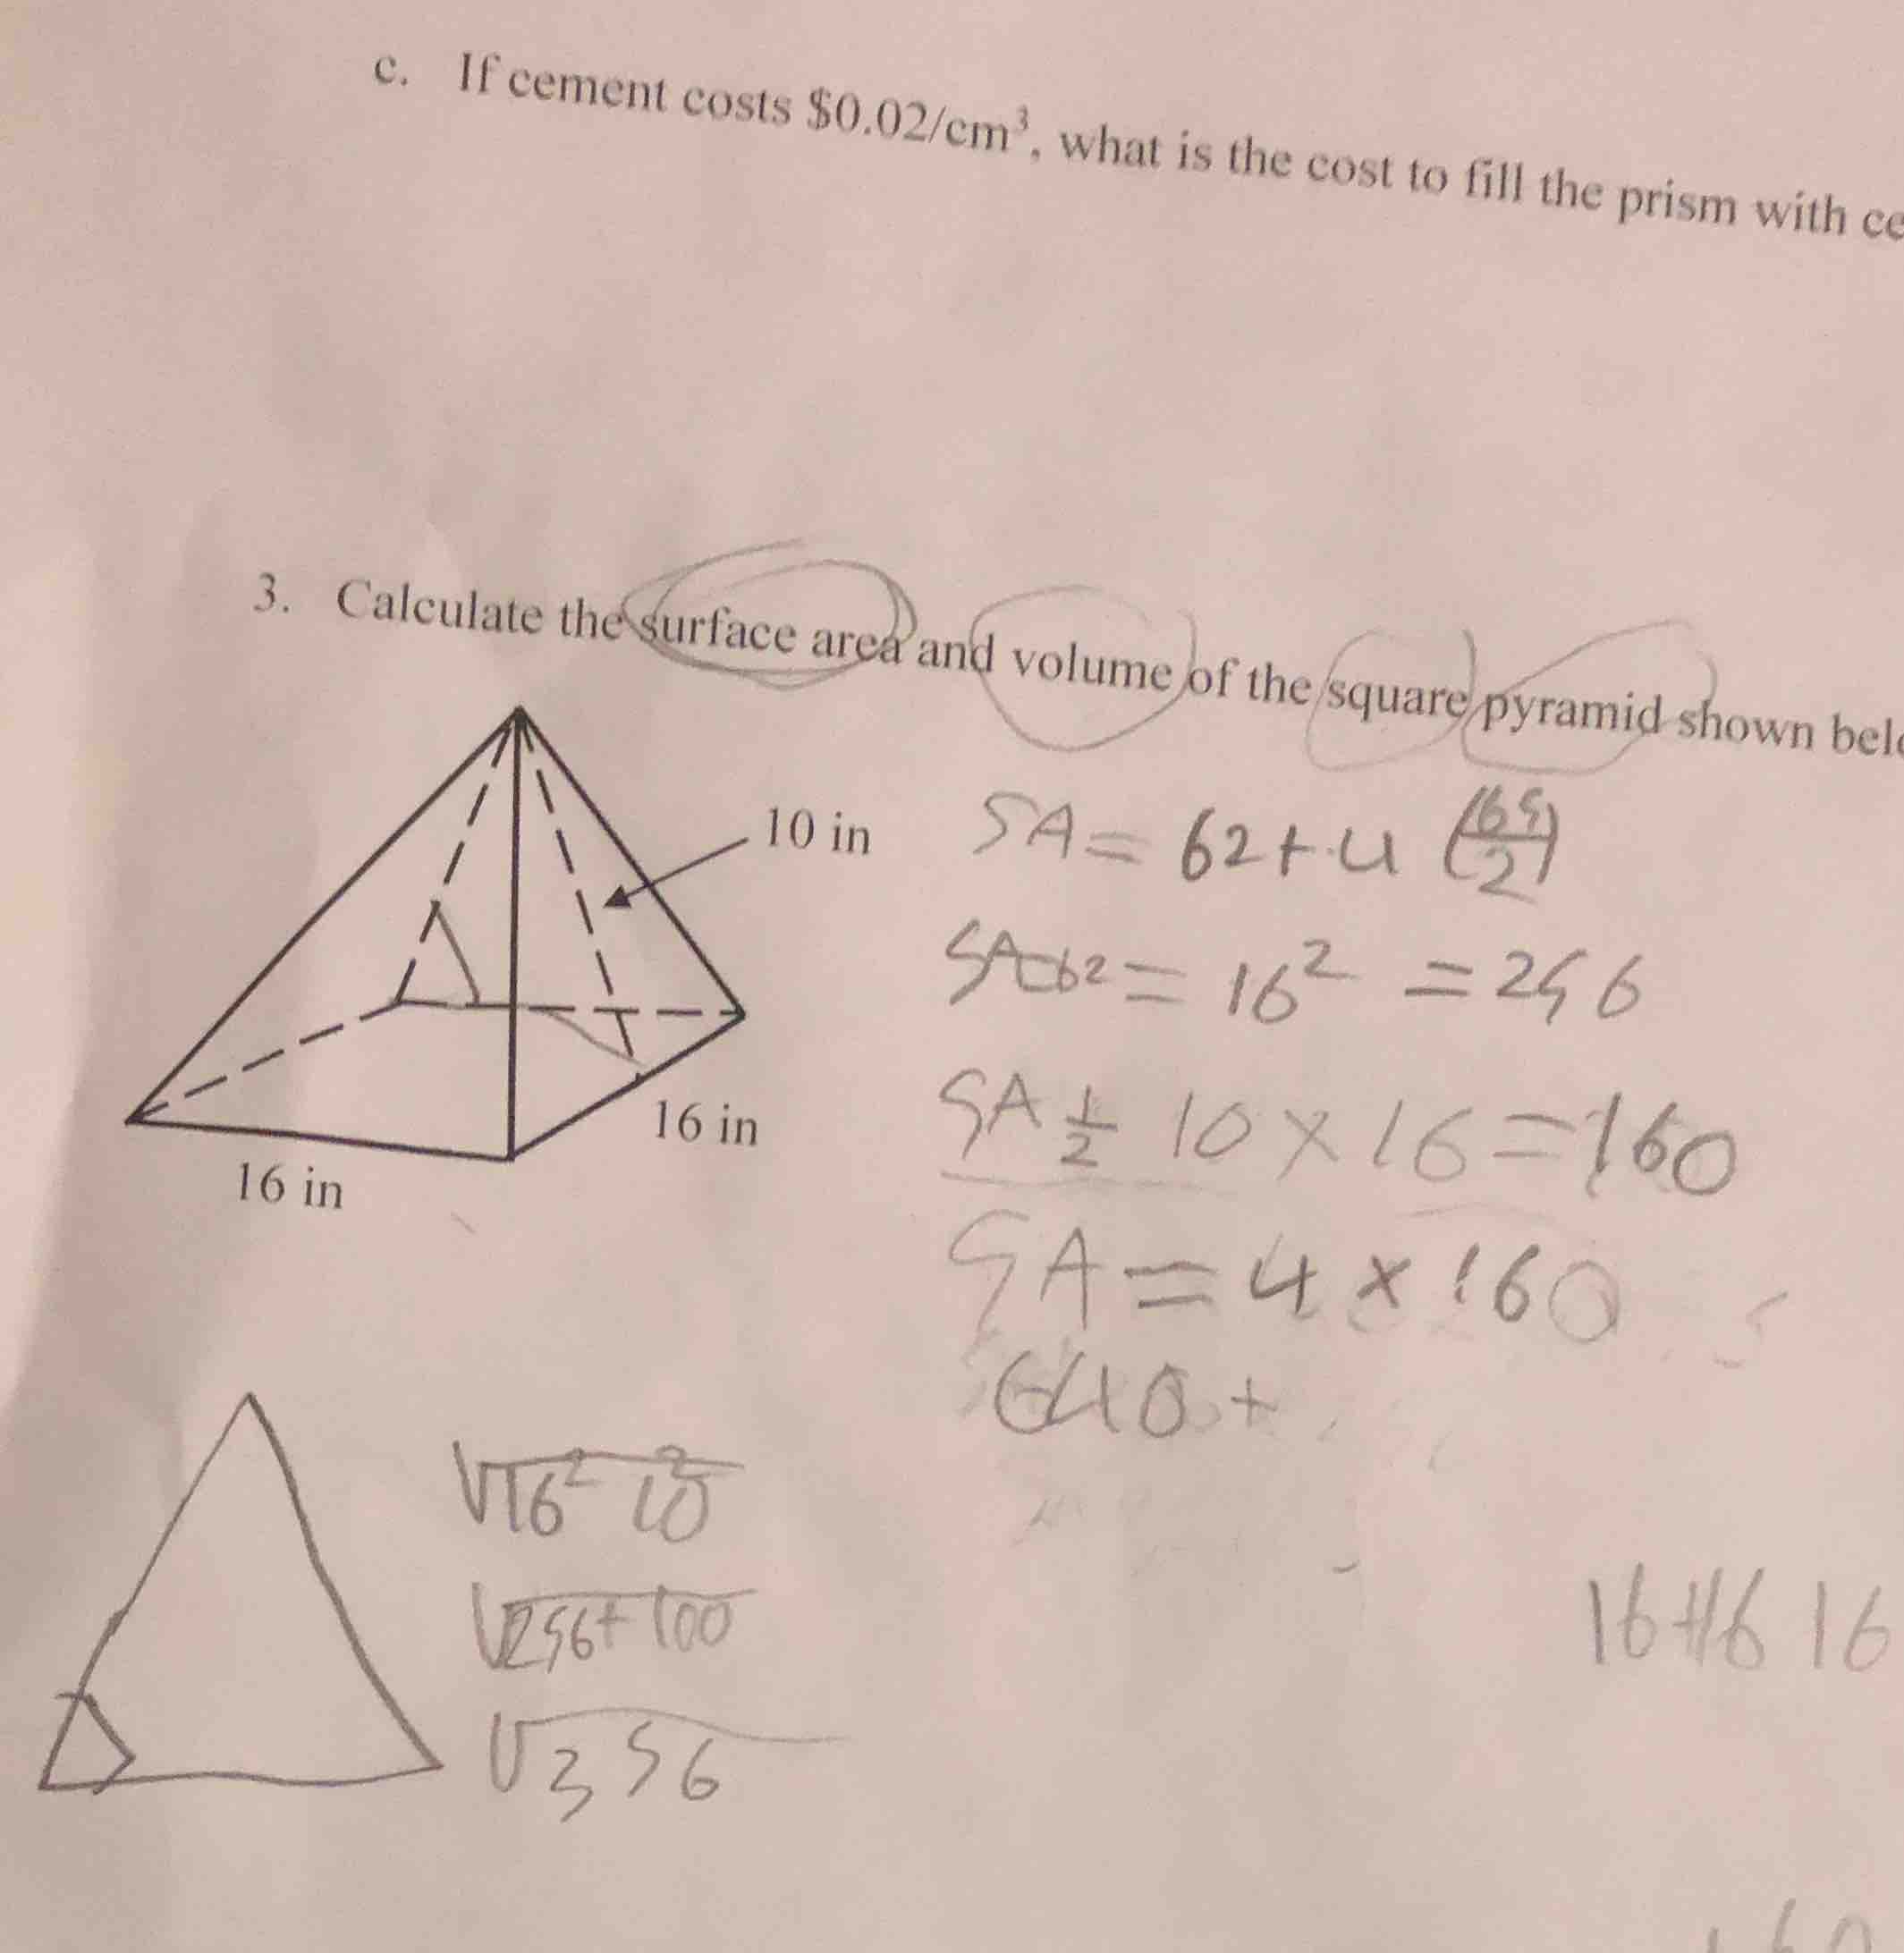 c. If cement costs $0.02/cm³, what is the cost to fill the prism with ce
3. Calculate the surface area and volume of the square pyramid shown belo
10 in
16 in
16 in
SA = b2 + 4 (bs/2)
SA b2 = 16² = 256
SA ½ 10 × 16 = 160
SA = 4 × 160
640 +
√16² 10²
√256+100
√356
16 16
60